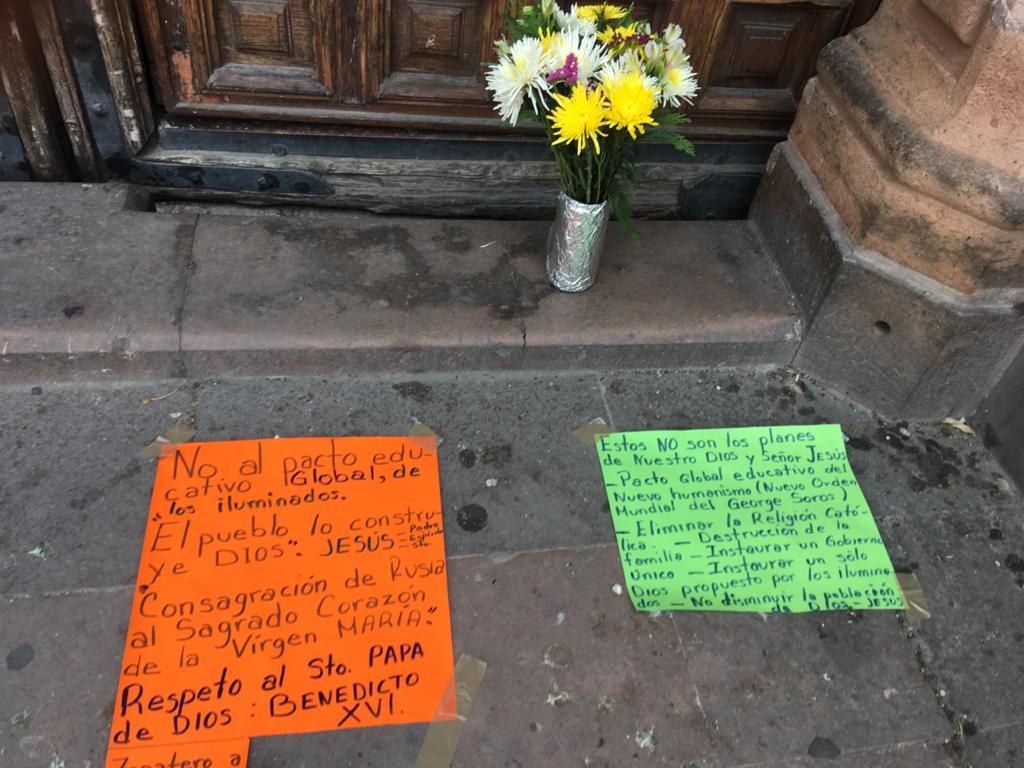 No al pacto edu-
cativo Global, de
"los iluminados.
"El pueblo lo constru-
ye DIOS". JESÚS= Padre
Espíritu
Sto.
"Consagración de Rusia
al Sagrado Corazón
de la Virgen MARÍA."
Respeto al Sto. PAPA
de DIOS: BENEDICTO
XVI.
Zapatero a
Estos NO son los planes
de Nuestro DIOS y Señor JESÚS
- Pacto Global educativo del
Nuevo humanismo (Nuevo Orden
Mundial del George Soros)
- Eliminar la Religión Cató-
lica - Destrucción de la
familia - Instaurar un Gobierno
Único - Instaurar un sólo
Dios propuesto por los ilumina-
dos - No disminuir la población
de DIOS - JESÚS